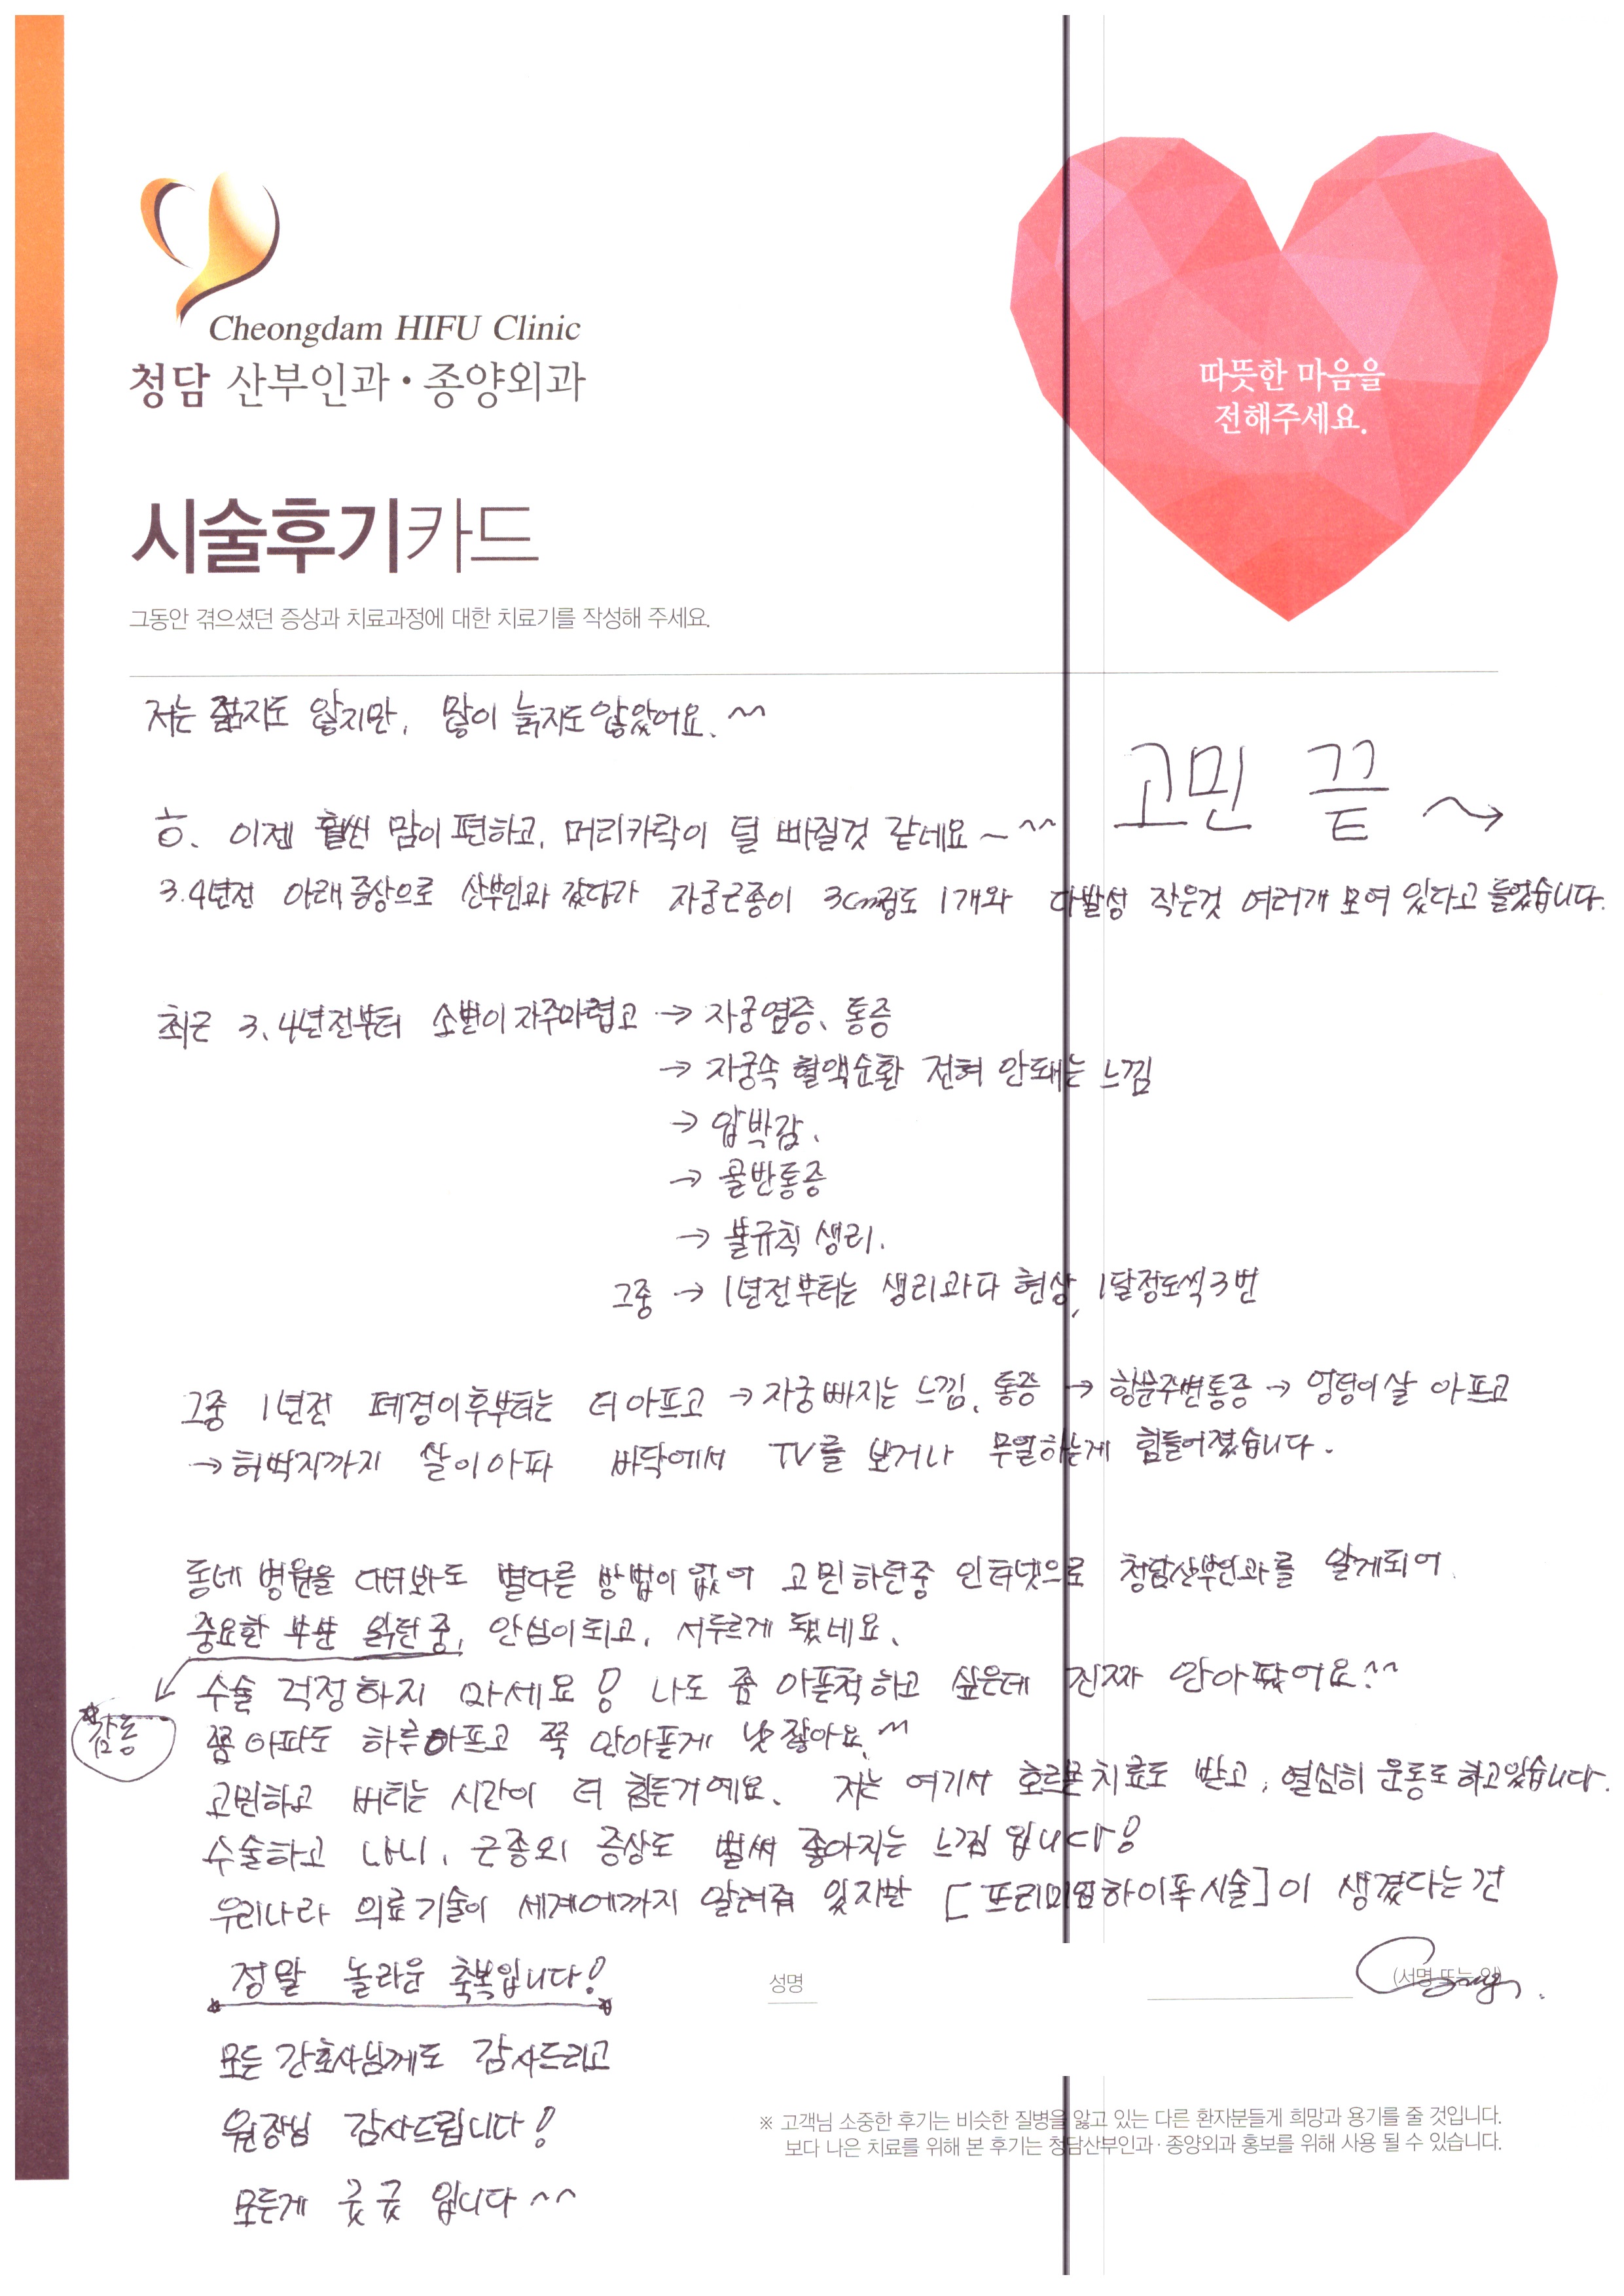 Cheongdam HIFU Clinic
청담 산부인과·종양외과
따뜻한 마음을
전해주세요.
시술후기카드
그동안 겪으셨던 증상과 치료과정에 대한 치료기를 작성해 주세요.
저는 젊지도 않지만, 많이 늙지도 않았어요. ^^
고민 끝 ~>
흐. 이젠 훨씬 맘이 편하고, 머리카락이 덜 빠질것 같네요~ ^^
3.4년전 아래증상으로 산부인과 갔다가 자궁근종이 3cm정도 1개와 다발성 작은것 여러개 모여 있다고 들었습니다.
최근 3.4년전부터 소변이자주마렵고 → 자궁염증. 통증
→ 자궁속 혈액순환 전혀 안돼는 느낌
→ 압박감.
→ 골반통증
→ 불규칙 생리.
그중 → 1년전부터는 생리과다 현상, 1달정도씩3번
그중 1년전 폐경이후부터는 더아프고 → 자궁빠지는 느낌. 통증 → 항문주변통증 → 엉덩이살 아프고
→ 허벅지까지 살이아파 바닥에서 TV를 보거나 무얼하는게 힘들어졌습니다.
동네 병원을 다녀봐도 별다른 방법이 없어 고민하던중 인터넷으로 청담산부인과를 알게되어.
중요한 부분 읽던중, 안심이되고, 서두르게 됐네요.
수술 걱정하지 마세요! 나도 좀 아픈척하고 싶은데 진짜 안아팠어요.^^
*감동
쫌 아파도 하루아프고 쭉 안아픈게 낫잖아요.^^
고민하고 버티는 시간이 더 힘든거예요. 저는 여기서 호르몬치료도 받고, 열심히 운동도하고있습니다.
수술하고 나니, 근종외 증상도 벌써 좋아지는 느낌 입니다!
우리나라 의료기술이 세계에까지 알려줘 있지만 [프리미엄하이푹시술]이 생겼다는건
정말 놀라운 축복입니다!
성명
(서명 또는 인)
모든 간호사님께도 감사드리고
원장님 감사드립니다!
모든게 굿굿 입니다^^
※ 고객님 소중한 후기는 비슷한 질병을 앓고 있는 다른 환자분들게 희망과 용기를 줄 것입니다.
보다 나은 치료를 위해 본 후기는 청담산부인과·종양외과 홍보를 위해 사용 될 수 있습니다.